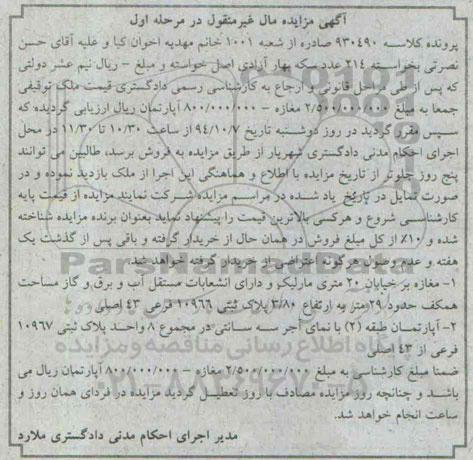 آگهی مزایده مال غیرمنقول در مرحله اول
پرونده کلاسه ۹۳۰۴۹۰ صادره از شعبه ۱۰۰۱ خانم مهدیه اخوان کیا و علیه آقای حسن
نصرتی بخواسته ۲۱۴ عدد سکه بهار آزادی اصل خواسته و مبلغ - ریال نیم عشر دولتی
که پس از طی مراحل قانونی و ارجاع به کارشناسی رسمی دادگستری قیمت ملک توقیفی
جمعا به مبلغ ۲/۵۰۰/۰۰۰/۰۰۰ مغازه - ۸۰۰/۰۰۰/۰۰۰ آپارتمان ریال ارزیابی گردیده که
سپس مقرر گردید در روز دوشنبه تاریخ ۹۴/۱۰/۷ از ساعت ۱۰/۳۰ تا ۱۱/۳۰ در محل
اجرای احکام مدنی دادگستری شهریار از طریق مزایده به فروش برسد، طالبین می توانند
پنج روز جلوتر از تاریخ مزایده با اطلاع و هماهنگی این اجرا از ملک بازدید نموده و در
صورت تمایل در تاریخ یاد شده در مراسم مزایده شرکت نمایند مزایده از قیمت پایه
کارشناسی شروع و هرکسی بالاترین قیمت را پیشنهاد نماید بعنوان برنده مزایده شناخته
شده و ۱۰٪ از کل مبلغ فروش در همان حال از خریدار گرفته و باقی پس از گذشت یک
هفته و عدم وصول هرگونه اعتراضی از خریدار گرفته خواهد شد.
ParsNamadData
۱- مغازه بر خیابان ۲۰ متری مارلیک و دارای انشعابات مستقل آب و برق و گاز مساحت
همکف حدود ۲۹ متر به ارتفاع ۳/۸۰ پلاک ثبتی ۱۰۹۶۶ فرعی ۴۳ اصلی
۲- آپارتمان طبقه (۲) با نمای آجر سه سانتی در مجموع ۸ واحد پلاک ثبتی ۱۰۹۶۷
فرعی از ۴۳ اصلی
پایگاه اطلاع رسانی مناقصه و مزایده
ضمنا مبلغ کارشناسی به مبلغ ۲/۵۰۰/۰۰۰/۰۰۰ مغازه - ۸۰۰/۰۰۰/۰۰۰ آپارتمان ریال می
۰۲۱-۸۸۳۴۹۶۷۰-۵
باشد و چنانچه روز مزایده مصادف با روز تعطیل گردید مزایده در فردای همان روز و
ساعت انجام خواهد شد.
مدیر اجرای احکام مدنی دادگستری ملارد